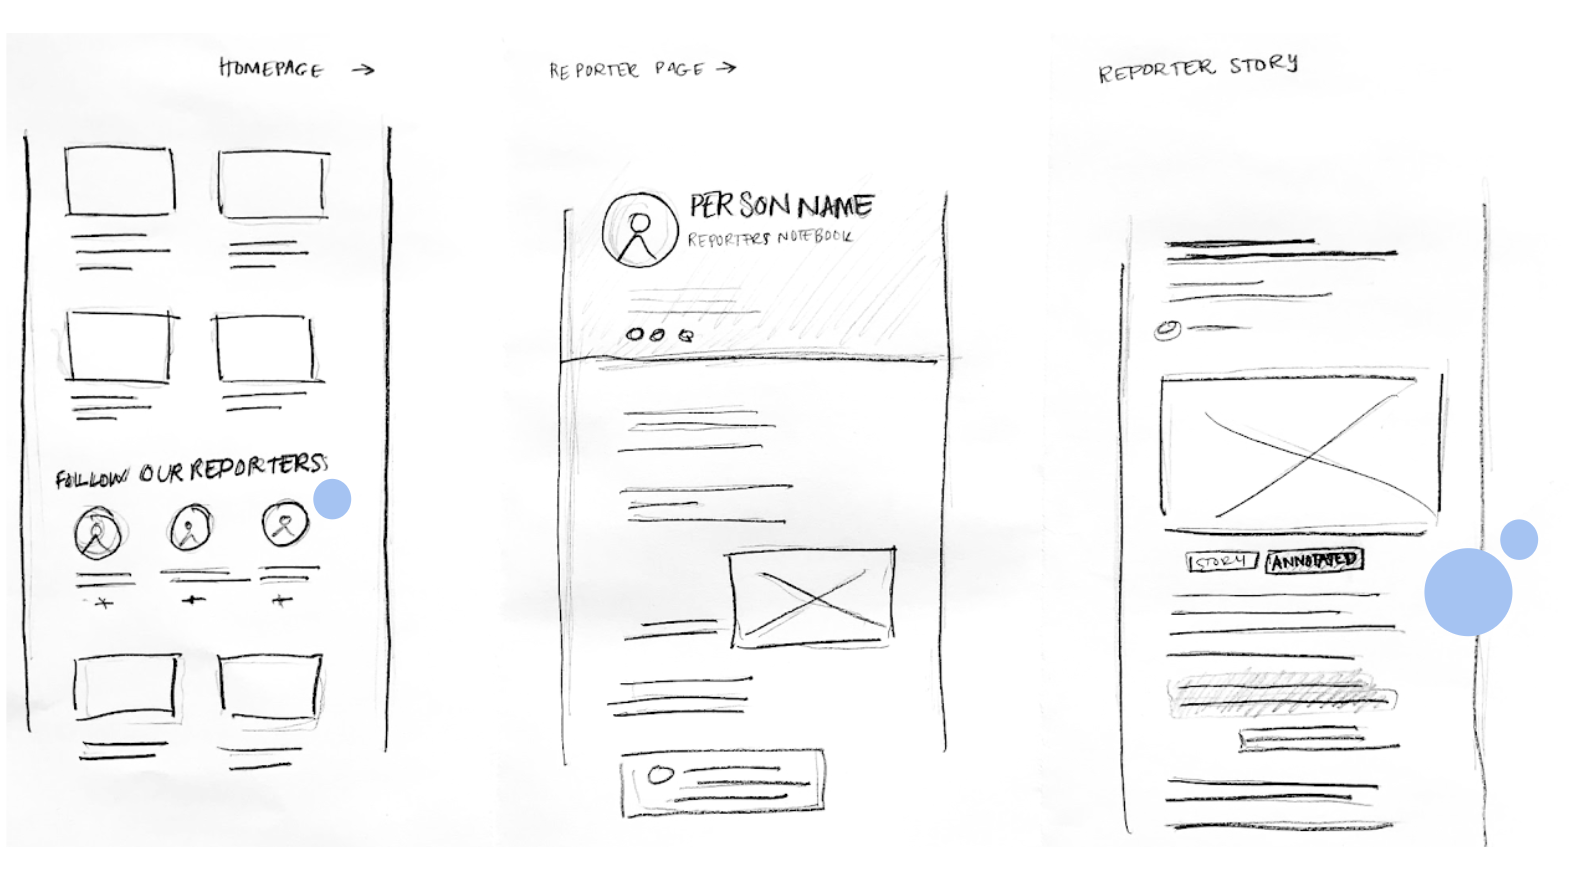 HOMEPAGE →
FOLLOW OUR REPORTERS
REPORTER PAGE →
PERSON NAME
REPORTERS NOTEBOOK
REPORTER STORY
STORY
ANNOTATED